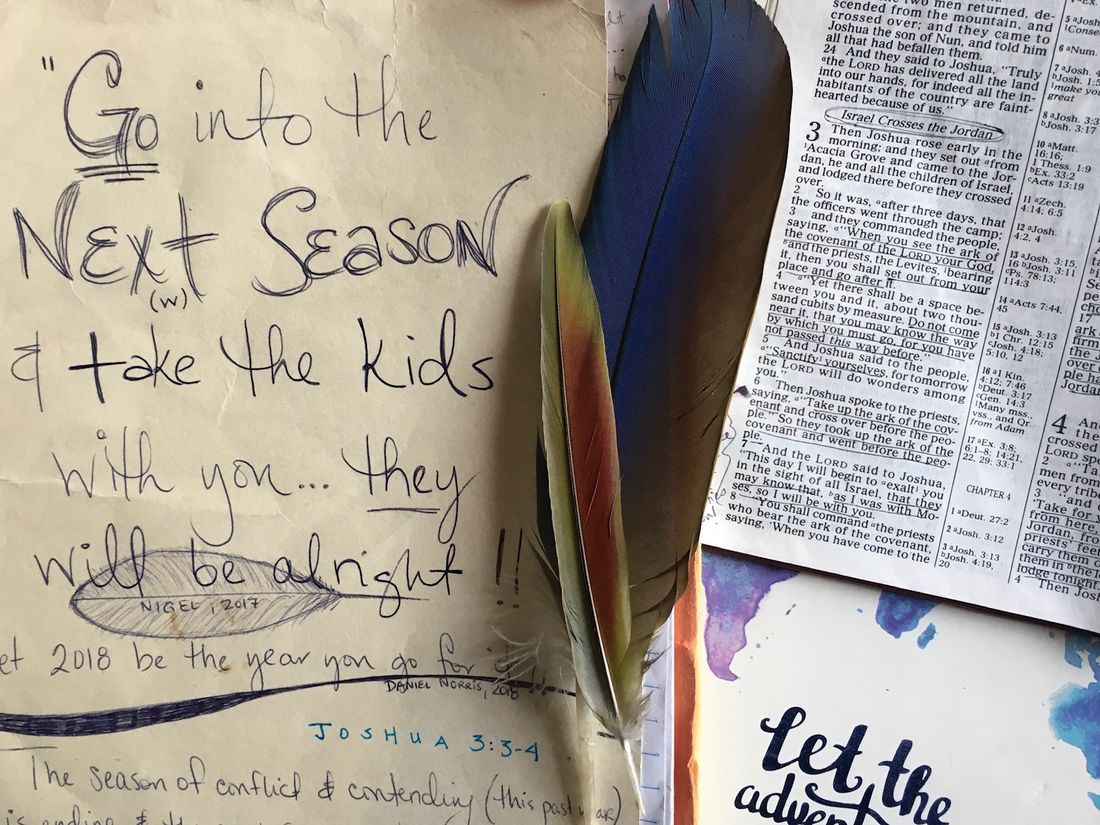 "Go into the
Next Season
(w)
& take the kids
with you... they
will be alright !!
NIGEL, 2017
et 2018 be the year you go for it!
DANIEL NORRIS, 2018
JOSHUA 3:3-4
The season of conflict & contending (this past year)
is ending &
two men returned, de-
scended from the mountain, and
crossed over; and they came to
Joshua the son of Nun, and told him
all that had befallen them.
24 And they said to Joshua, "Truly
the LORD has delivered all the land
into our hands, for indeed all the in-
habitants of the country are faint-
hearted because of us."
Israel Crosses the Jordan
3 Then Joshua rose early in the
morning; and they set out afrom
Acacia Grove and came to the Jor-
dan, he and all the children of Israel,
and lodged there before they crossed
over.
2 So it was, aafter three days, that
the officers went through the camp;
3 and they commanded the people,
saying, a"When you see the ark of
the covenant of the LORD your God,
band the priests, the Levites, bearing
it, then you shall set out from your
place and go after it.
4 a"Yet there shall be a space be-
tween you and it, about two thou-
sand cubits by measure. Do not come
near it, that you may know the way
by which you must go, for you have
not passed this way before."
5 And Joshua said to the people,
a"Sanctify yourselves, for tomorrow
the LORD will do wonders among
you."
6 Then Joshua spoke to the priests,
saying, a"Take up the ark of the cov-
enant and cross over before the peo-
ple." So they took up the ark of the
covenant and went before the peo-
ple.
7 And the LORD said to Joshua,
"This day I will begin to aexalt you
in the sight of all Israel, that they
may know that, bas I was with Mo-
ses, so I will be with you.
8 "You shall command athe priests
who bear the ark of the covenant,
saying, 'When you have come to the
6 aNum.
7 aJosh.
bJosh.
great
8 aJosh. 3:3
bJosh. 3:17
10 aMatt.
16:16;
1 Thess. 1:9
bEx. 33:2
cActs 13:19
11 aZech.
4:14; 6:5
12 aJosh.
4:2, 4
13 aJosh. 3:15,
16 bJosh. 3:11
cPs. 78:13;
114:3
14 aActs 7:44,
45
15 aJosh. 3:13
b1 Chr. 12:15
cJosh. 4:18;
5:10, 12
16 a1 Kin.
4:12; 7:46
bDeut. 3:17
cGen. 14:3
1Many mss.,
vss., and Qr
from Adam
17 aEx. 3:8;
6:1–8; 14:21,
22, 29; 33:1
CHAPTER 4
1 aDeut. 27:2
2 aJosh. 3:12
3 aJosh. 3:13
bJosh. 4:19,
20
let the